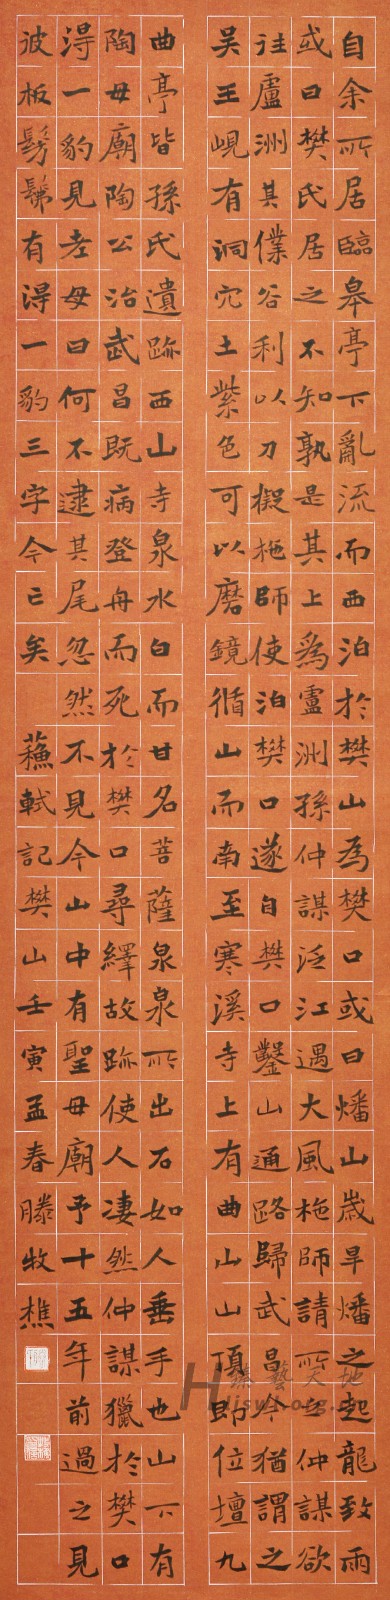 自余所居臨皋亭下亂流而西泊於樊山為樊口或曰燔山歲旱燔之起龍致雨
或曰樊氏居之不知孰是其上為盧洲孫仲謀泛江遇大風柂師請所之仲謀欲
往盧洲其僕谷利以刀擬柂師使泊樊口遂自樊口鑿山通路歸武昌今猶謂之
吳王峴有洞穴土紫色可以磨鏡循山而南至寒溪寺上有曲山山頂即位壇九
曲亭皆孫氏遺跡西山寺泉水白而甘名菩薩泉泉所出石如人垂手也山下有
陶母廟陶公治武昌既病登舟而死於樊口尋繹故跡使人凄然仲謀獵於樊口
淂一豹見老母曰何不逮其尾忽然不見今山中有聖母廟予十五年前過之見
彼板髣髴有淂一豹三字今亡矣 蘇軾記樊山壬寅孟春滕牧樵